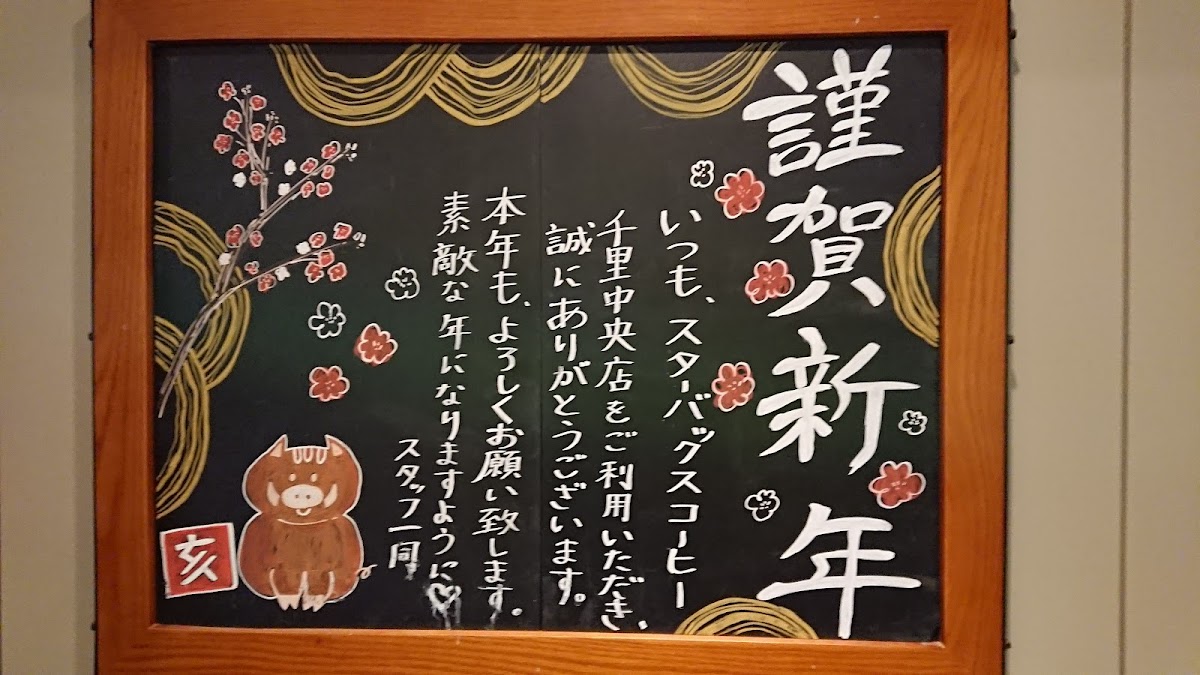 謹賀新年
いつも、スターバックスコーヒー
千里中央店をご利用いただき、
誠にありがとうございます。
本年も、よろしくお願い致します。
素敵な年になりますように♡
スタッフ一同
亥